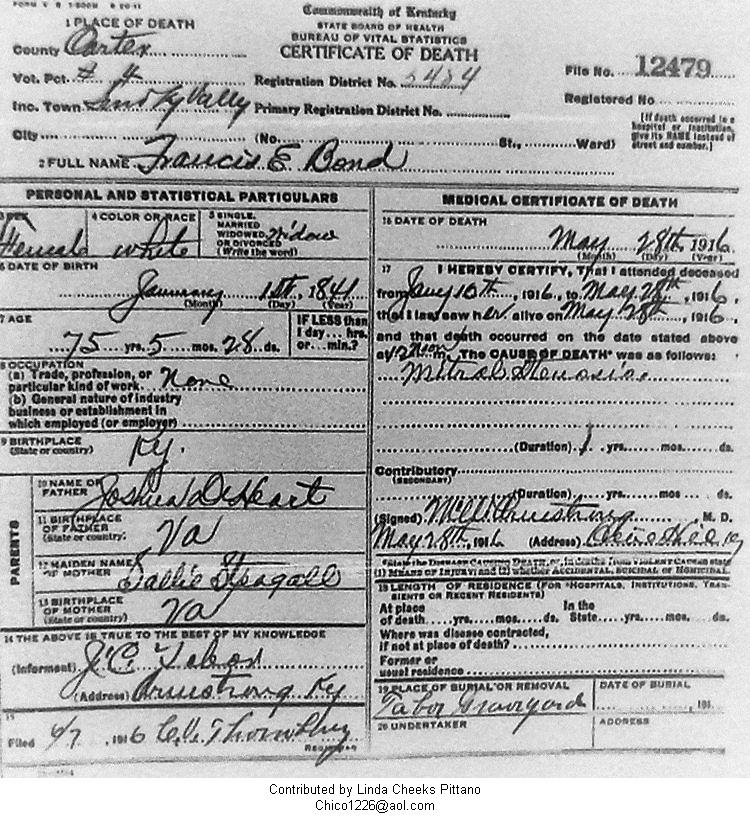 Commonwealth of Kentucky
STATE BOARD OF HEALTH
BUREAU OF VITAL STATISTICS
CERTIFICATE OF DEATH
1 PLACE OF DEATH
County Carter
Vot. Pct # 4
Registration District No.
File No. 12479
Inc. Town Valley
Primary Registration District No.
Registered No
City (No. St., Ward)
[If death occurred in a
hospital or institution,
give its NAME instead of
street and number.]
2 FULL NAME Francis E Bond
PERSONAL AND STATISTICAL PARTICULARS
3 SEX
Female
4 COLOR OR RACE
white
5 SINGLE,
MARRIED
WIDOWED
OR DIVORCED
(Write the word)
Widow
6 DATE OF BIRTH
January 1st, 1841
(Month) (Day) (Year)
7 AGE
75 yrs. 5 mos. 28 ds.
IF LESS than
1 day... hrs.
or... min.?
8 OCCUPATION
(a) Trade, profession, or
particular kind of work None
(b) General nature of industry
business or establishment in
which employed (or employer)
9 BIRTHPLACE
(State or country)
Ky.
PARENTS
10 NAME OF
FATHER
Joshua DeHeart
11 BIRTHPLACE
OF FATHER
(State or country)
Va
12 MAIDEN NAME
OF MOTHER
Sallie
13 BIRTHPLACE
OF MOTHER
(State or country)
Va
14 THE ABOVE IS TRUE TO THE BEST OF MY KNOWLEDGE
(Informant) J.C.
(Address) Armstrong Ky
15
Filed 6/7, 1916
REGISTRAR
MEDICAL CERTIFICATE OF DEATH
16 DATE OF DEATH
May 28th, 1916
(Month) (Day) (Year)
17 I HEREBY CERTIFY, That I attended deceased
from 10th, 1916, to May 28th, 1916,
that I last saw her alive on May 28th, 1916,
and that death occurred on the date stated above
at 12 noon m. The CAUSE OF DEATH* was as follows:
Mitral Stenosis
(Duration) 1 yrs. mos. ds.
Contributory
(SECONDARY)
(Duration) yrs. mos ds.
(Signed) Armstrong M. D.
May 28th, 1916 (Address) Ky
*State the DISEASE CAUSING DEATH, or, in deaths from VIOLENT CAUSES state
(1) MEANS OF INJURY; and (2) whether ACCIDENTAL, SUICIDAL or HOMICIDAL.
18 LENGTH OF RESIDENCE (FOR HOSPITALS, INSTITUTIONS, TRAN-
SIENTS OR RECENT RESIDENTS)
At place
of death yrs. mos. ds.
In the
State yrs. mos. ds.
Where was disease contracted,
if not at place of death?
Former or
usual residence
19 PLACE OF BURIAL OR REMOVAL
Tabor Graveyard
DATE OF BURIAL
191
20 UNDERTAKER
ADDRESS
Contributed by Linda Cheeks Pittano
Chico1226@aol.com